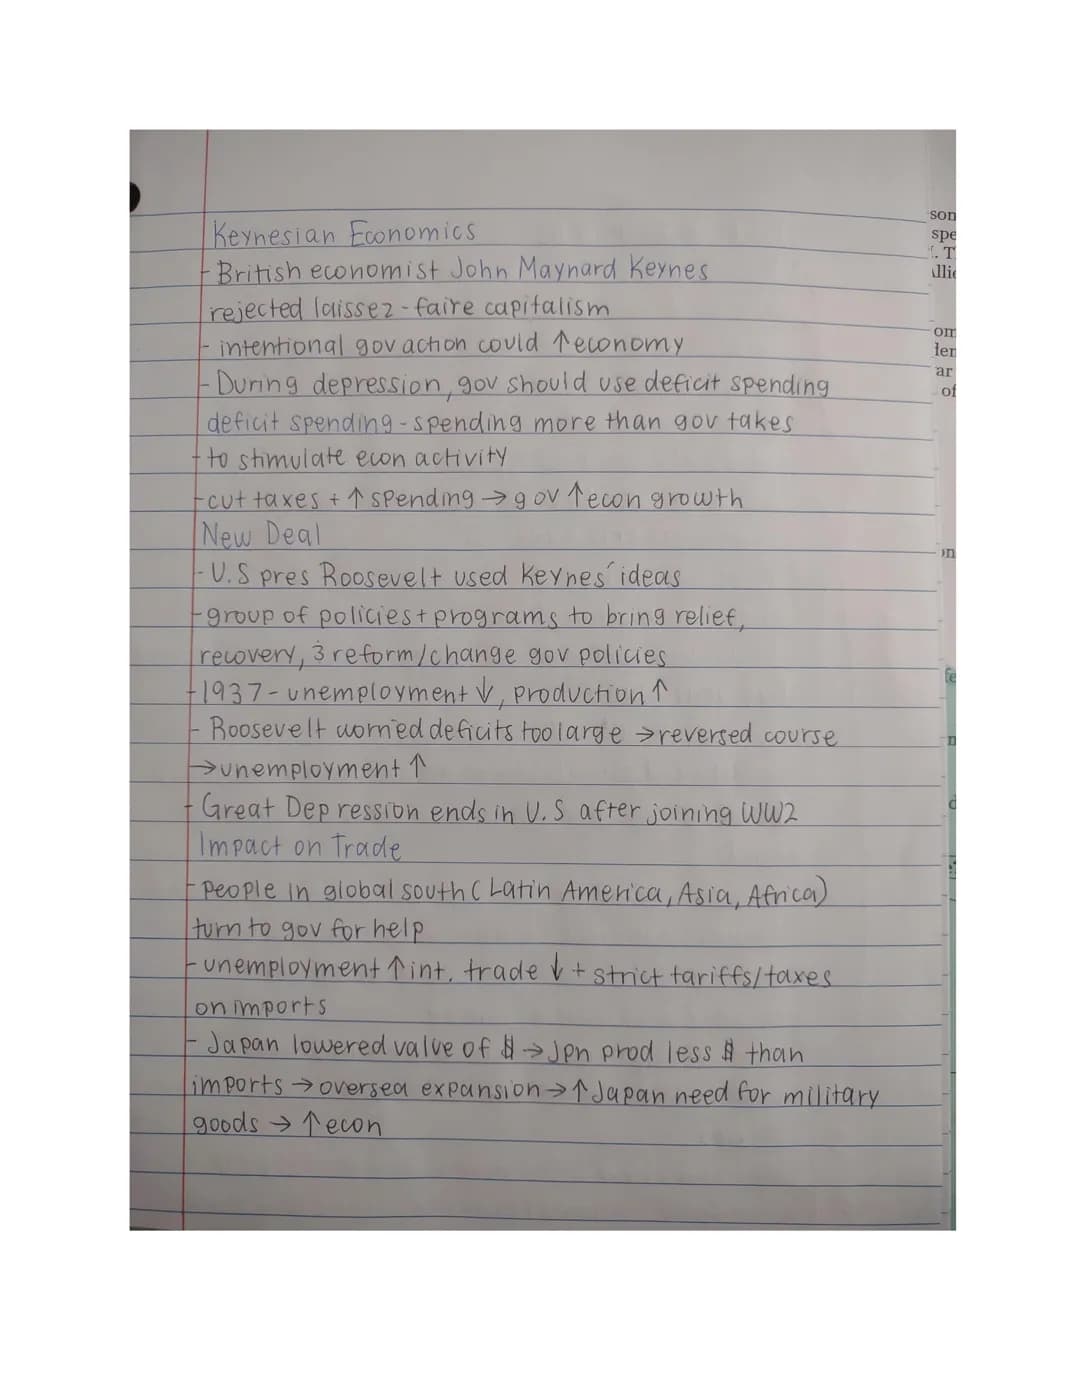 Keynesian Economics
- British economist John Maynard Keynes
rejected laissez-faire capitalism
- intentional gov action could ↑economy
- During depression, gov should use deficit spending
deficit spending - spending more than gov takes
- to stimulate econ activity
- cut taxes + ↑ spending → gov ↑econ growth
New Deal
- U.S pres Roosevelt used Keynes' ideas
- group of policies + programs to bring relief,
recovery, & reform/change gov policies
- 1937 - unemployment ↓, production ↑
- Roosevelt worried deficits too large → reversed course
→ unemployment ↑
- Great Depression ends in U.S after joining WW2
Impact on Trade
- People in global south (Latin America, Asia, Africa)
turn to gov for help
- unemployment ↑ int. trade ↓ + strict tariffs/taxes
on imports
- Japan lowered value of $ → Jpn prod less $ than
imports → oversea expansion → ↑ Japan need for military
goods → ↑ econ
son
spe
. T
llie
om
ler
ar
of
on
fe